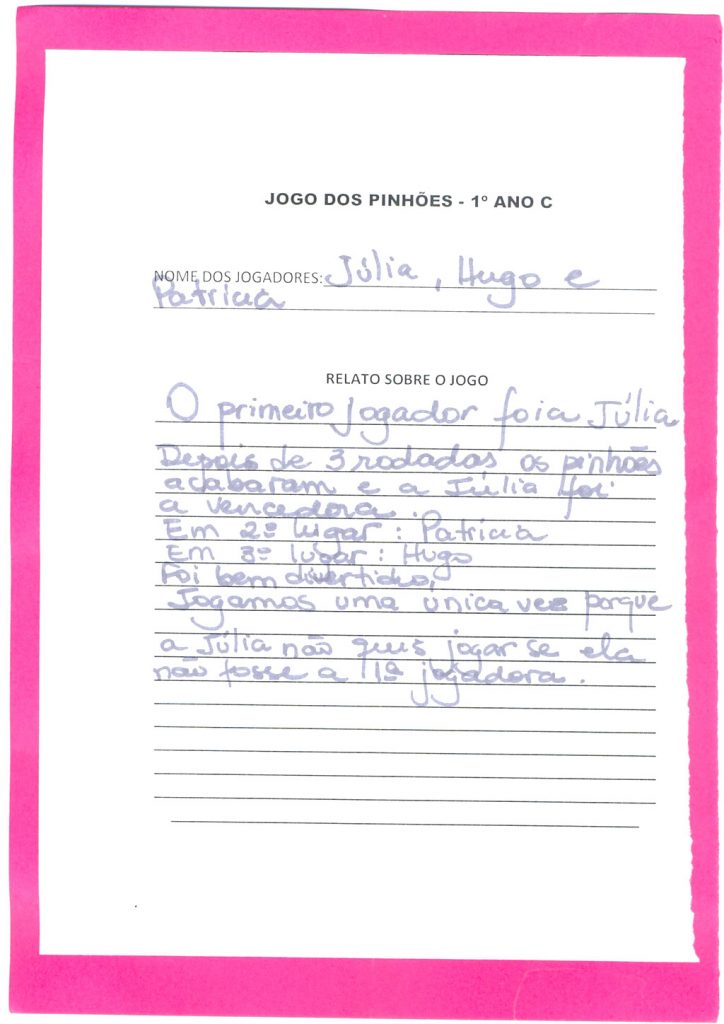 JOGO DOS PINHÕES - 1º ANO C
NOME DOS JOGADORES: Júlia, Hugo e
Patricia
RELATO SOBRE O JOGO
O primeiro jogador foi a Júlia
Depois de 3 rodadas os pinhões
acabaram e a Júlia foi
a vencedora.
Em 2º lugar: Patricia
Em 3º lugar: Hugo
Foi bem divertido,
Jogamos uma única vez porque
a Júlia não quis jogar se ela
não fosse a 1ª jogadora.